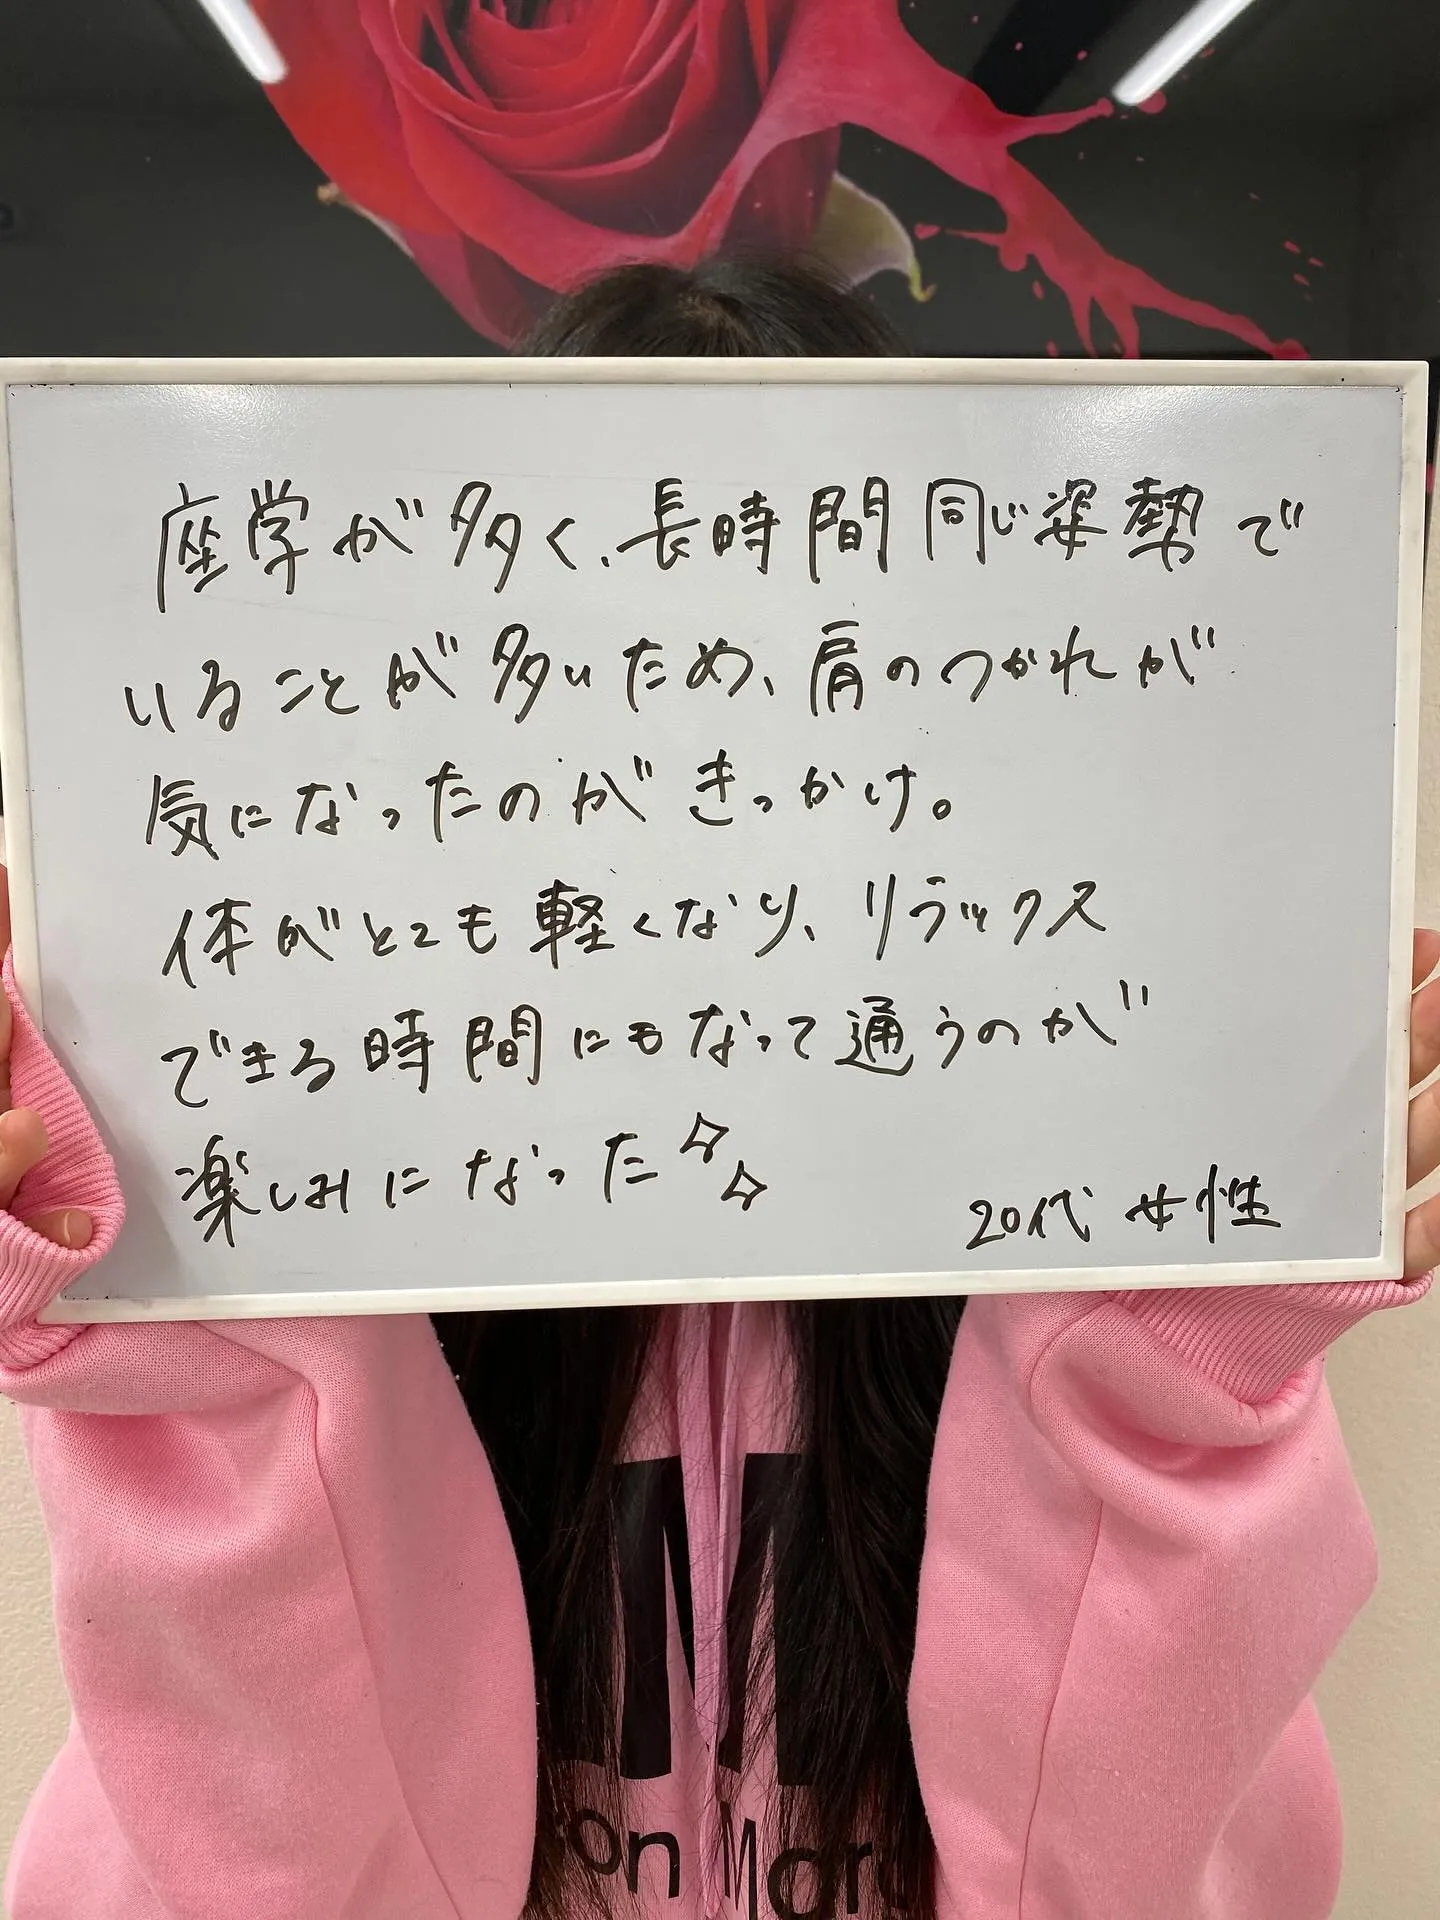 座学が多く、長時間同じ姿勢で
いることが多いため、肩のつかれが
気になったのがきっかけ。
体がとても軽くなり、リラックス
できる時間にもなって通うのが
楽しみになった
20代 女性
on Mar